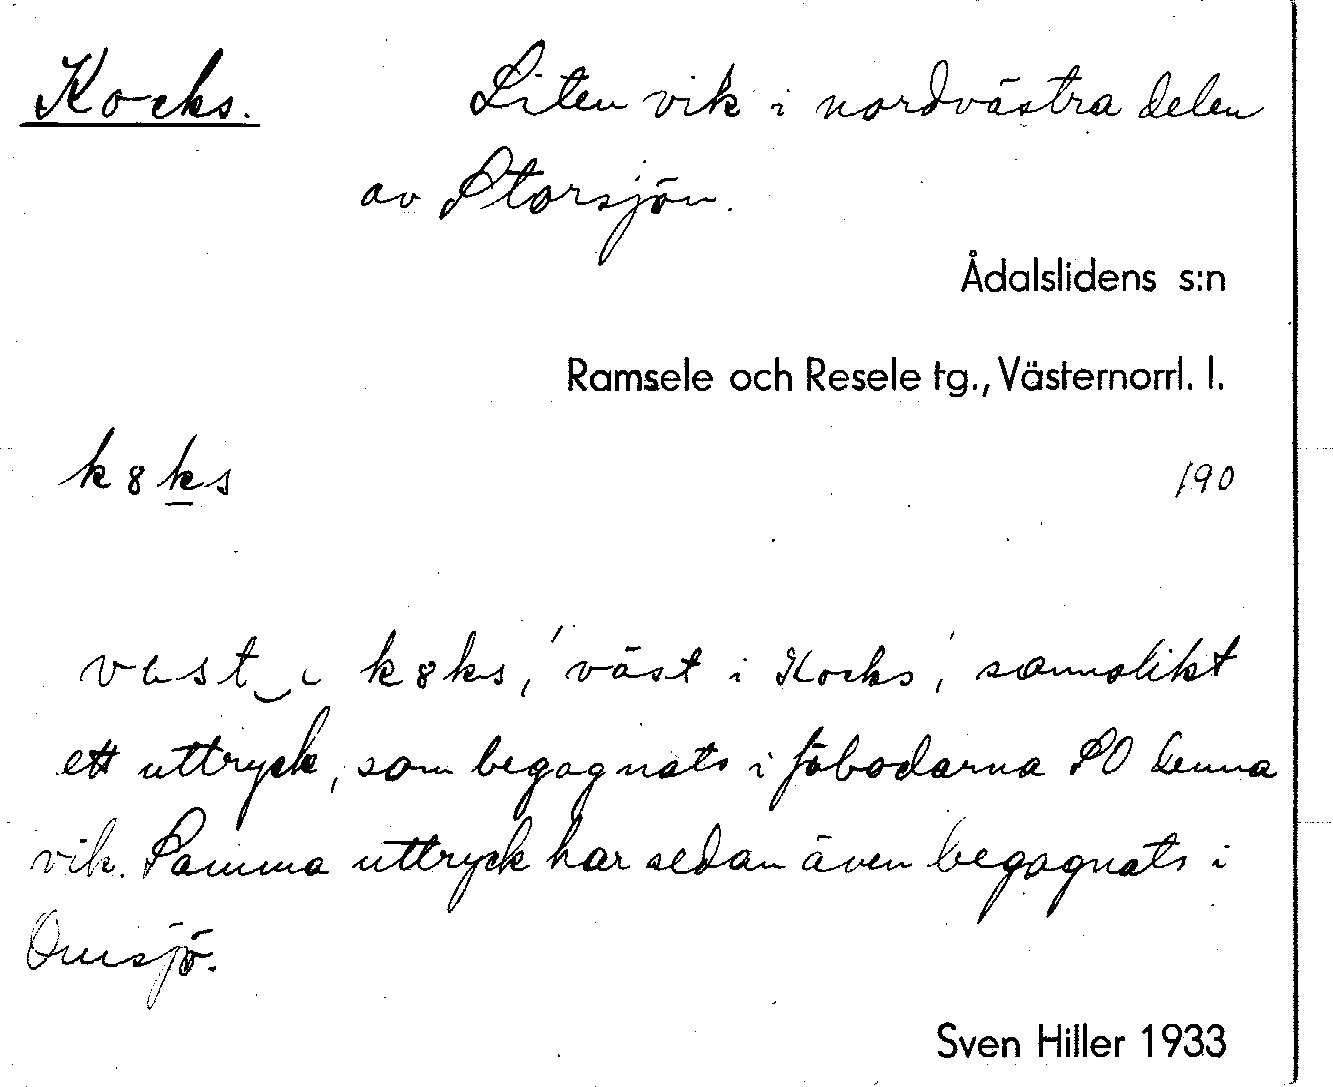 Kocks. Liten vik i nordvästra delen
av Storsjön.
Ådalslidens s:n
Ramsele och Resele tg., Västernorrl. l.
k8ks 190
vast i k8ks, 'väst i Kocks', sannolikt
ett uttryck, som begagnats i fäbodarna SO denna
vik. Samma uttryck har sedan även begagnats i
Omsjö.
Sven Hiller 1933